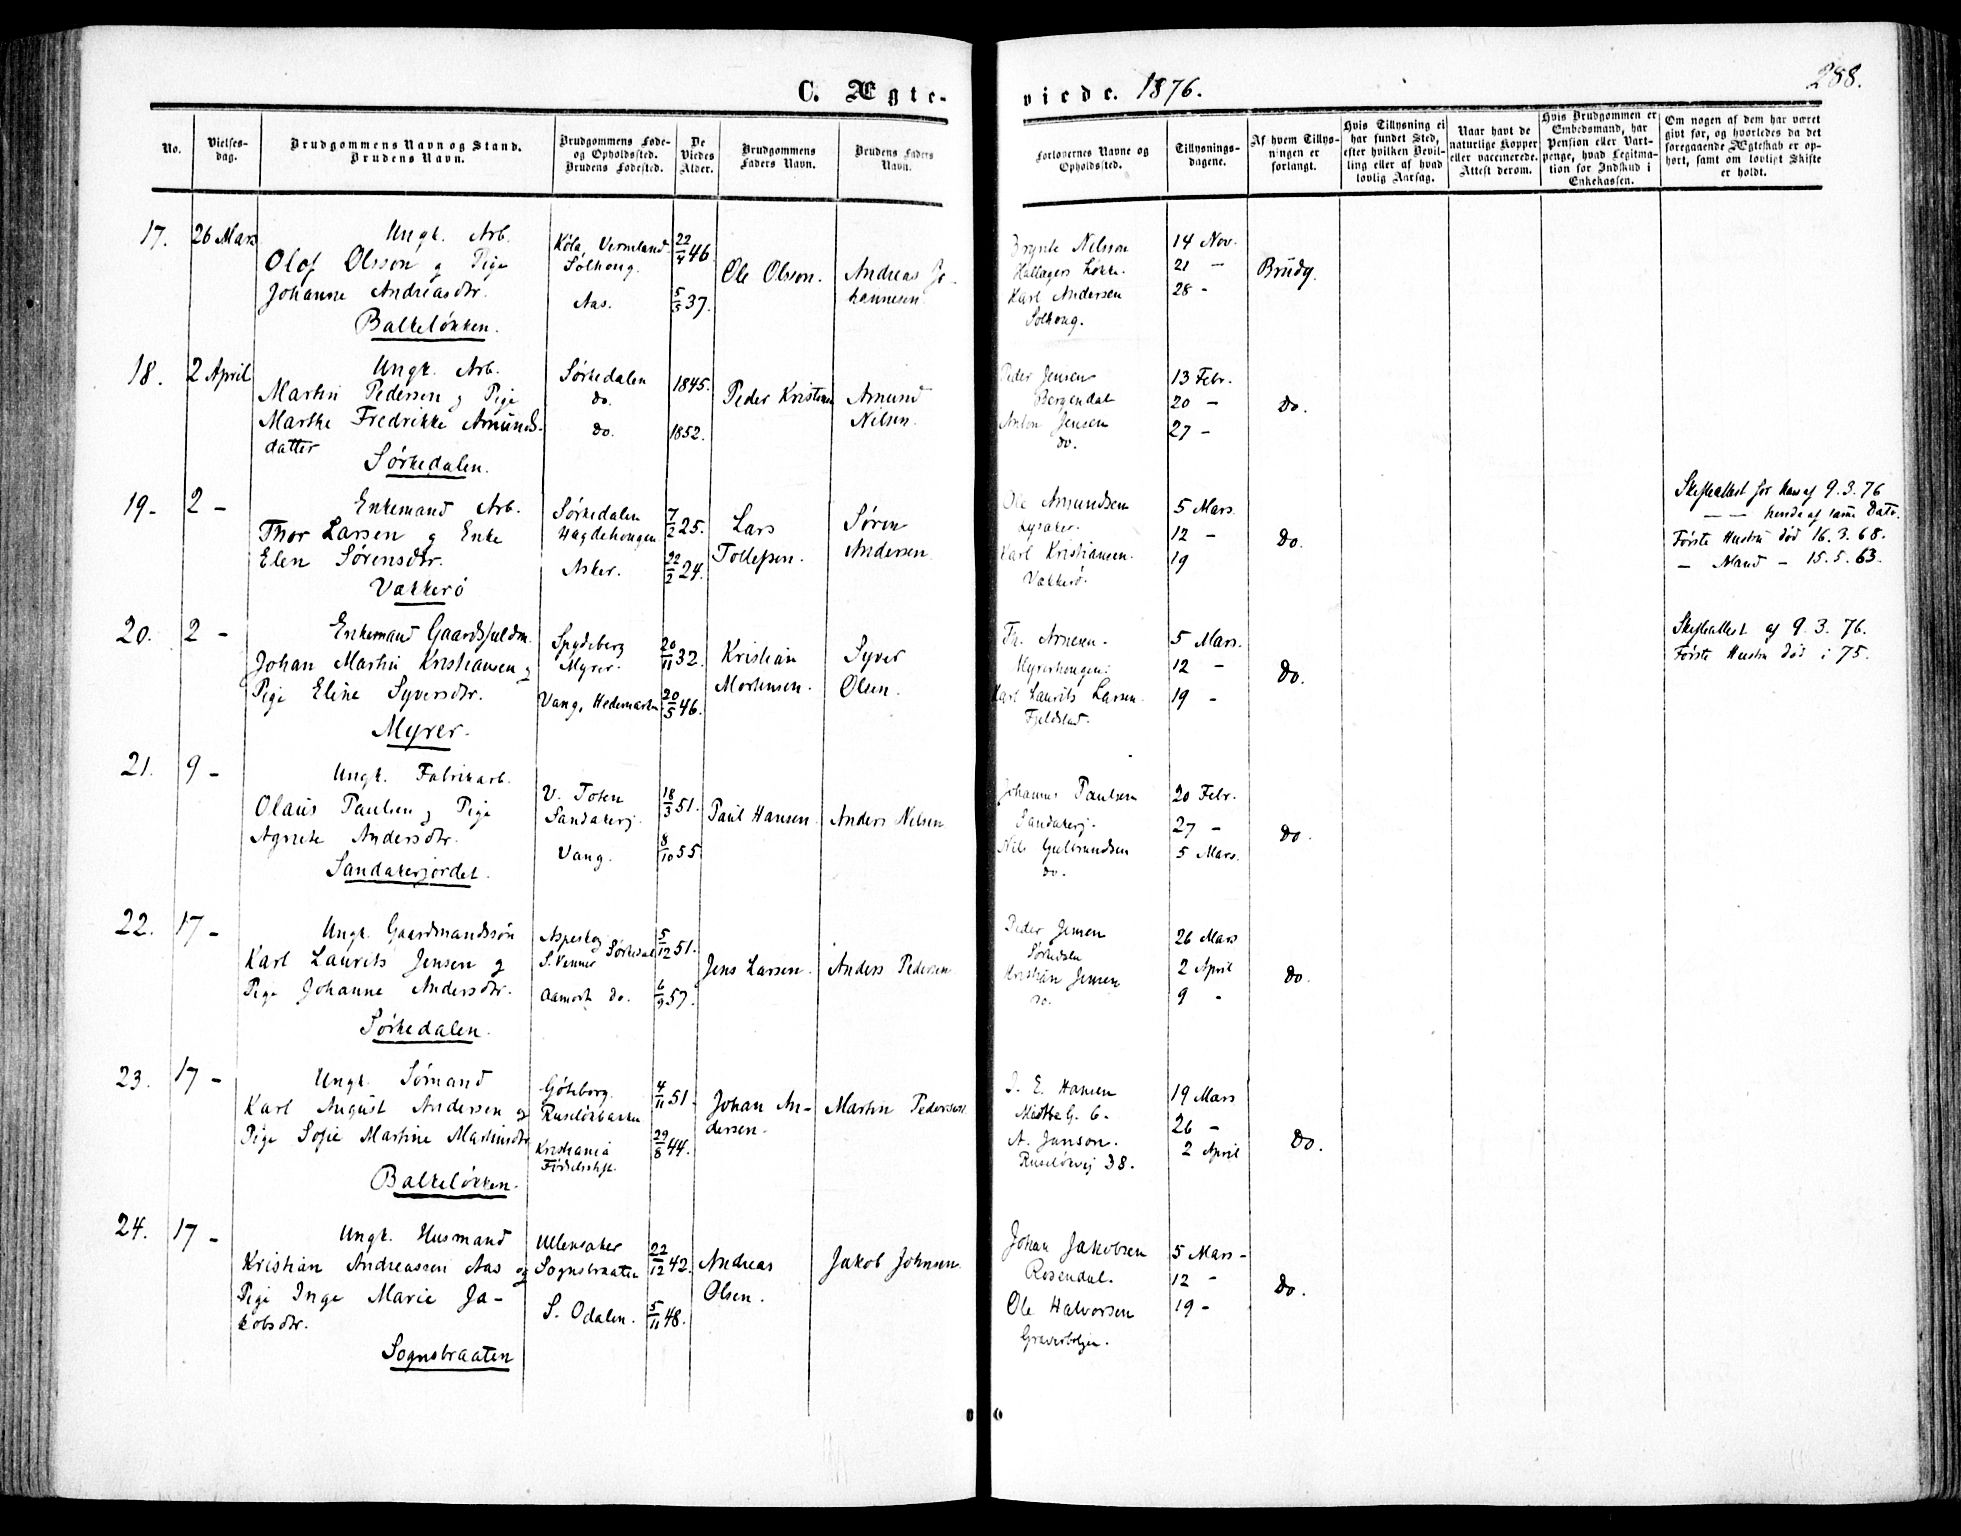 C. Ægte-
viede. 1876.
288.
No.
Vielses-
dag.
Brudgommens Navn og Stand.
Brudens Navn.
Brudgommens Føde-
og Opholdssted.
Brudens Fødested.
De
Viedes
Alder.
Brudgommens
Faders Navn.
Brudens Faders
Navn.
Forlovernes Navne og
Opholdssted.
Tillysnings-
dagene.
Af hvem Tillys-
ningen er
forlangt.
Hvis Tillysning ei
har fundet Sted,
efter hvilken Bevil-
ling eller af hvad
lovlig Aarsag.
Naar havt de
naturlige Kopper
eller vaccinerede.
Attest derom.
Hvis Brudgommen er
Embedsmand, har
Pension eller Vart-
penge, hvad Legitima-
tion for Indskud i
Enkekassen.
Om nogen af dem har været
givt før, og hvorledes da det
foregaaende Ægteskab er op-
hørt, samt om lovligt Skifte
er holdt.
17. 26 Mars
Ungk. Arb.
Olof Olsson og Pige
Johanne Andreasdtr.
Balkeløkken.
Köla, Vermland
Solhoug.
Aas.
22/4 46.
5/3 37.
Ole Olsson.
Andreas Jo-
hannesen
Brynte Nilsson
Hallagers Løkke.
Karl Andersen
Solhoug.
14 Nov.
21 -
28 -
Brudg.
18. 2 April
Ungk. Arb.
Martin Pedersen og Pige
Marthe Fredrikke Amunds-
datter
Sørkedalen.
Sørkedalen
do.
do.
1845.
1852.
Peder Kristiansen
Amund
Nilsen.
Peder Jensen
Bergendal
Anton Jensen
do.
13 Febr.
20 -
27 -
do.
19- 2 -
Enkemand Arb.
Thor Larsen og Enke
Elen Sørensdtr.
Vækkerø
Sørkedalen
Hagdehougen
Asker.
7/2 25.
22/2 24.
Lars
Tollefsen.
Søren
Andersen
Ole Amundsen
Lysaker.
Karl Kristiansen.
Vækkerø
5 Mars.
12 -
19
do.
Skifteattest for ham af 9.3.76
- - hende af samme Dato.
Første Hustru død 16.3.68.
- Mand - 15.5.63.
20. 2 -
Enkemand Gaardsfuldm.
Johan Martin Kristiansen og
Pige Eline Syversdtr.
Myrer.
Spydeberg
Myrer.
Vang, Hedemarken
20/11 32.
20/5 46.
Kristian
Mortensen.
Syver
Olsen.
Fr. Arnesen.
Myrerhougen.
Karl Laurits Larsen.
Fjeldstad.
5 Mars.
12 -
19 -
do.
Skifteattest af 9.3.76.
Første Hustru død i 75.
21. 9 -
Ungk. Fabrikarb.
Olaus Paulsen og Pige
Agnete Andersdtr.
Sandakerjordet.
V. Toten
Sandakerj.
Vang.
18/3 51.
8/10 55
Paul Hansen.
Anders Nilsen
Johannes Paulsen
Sandakerj.
Nils Gulbrandsen
do.
20 Febr.
27 -
5 Mars.
do.
22. 17 -
Ungk. Gaardmandssøn
Karl Laurits Jensen og
Pige Johanne Andersdtr.
Sørkedalen.
Aspeskog
S. Venner Sørkedal
Aamork do.
5/12 51.
6/9 57.
Jens Larsen.
Anders Pedersen
Peder Jensen
Sørkedalen
Kristian Jensen
do.
26 Mars
2 April
9 -
do.
23. 17 -
Ungk. Sømand
Karl August Andersen og
Pige Sofie Martine Martinsdtr.
Balkeløkken.
Göteborg.
Ruseløkbakken
Kristiania
Fødselsstift.
4/11 51.
29/8 44.
Johan An-
dersen.
Martin Pedersen
J. E. Hansen
G. 6.
A. Janson.
Ruseløkvej 38.
19 Mars
26 -
2 April
do.
24. 17 -
Ungk. Husmand
Kristian Andreassen Aas og
Pige Inge Marie Ja-
kobsdtr.
Sognsbraaten
Ullensaker
Sognsbraaten
S. Odalen.
22/12 42.
5/11 48.
Andreas
Olsen.
Jakob Johnsen
Johan Jakobsen
Rosendal.
Ole Halvorsen
5 Mars -
12 -
19 -
do.